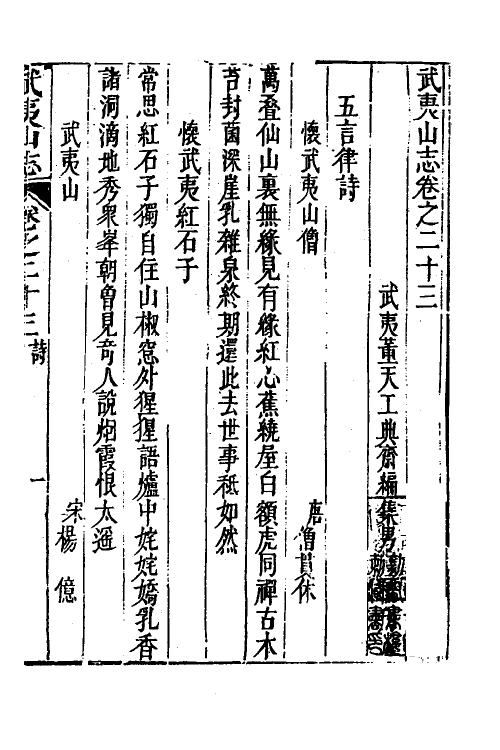 武夷山志卷之二十三
武夷董天工典齋編集男
五言律詩
懷武夷山僧
唐僧貫休
萬叠仙山裏無緣見有緣紅心蕉繞屋白額虎同禪古木
苔封菌深崖乳雜泉終期還此去世事秪如然
懷武夷紅石子
常思紅石子獨自住山椒窓外猩猩語爐中姹姹嬌乳香
諸洞滴地秀衆峯朝曾見竒人說烟霞恨太遥
武夷山
宋楊億
武夷山志
卷之二十三
詩
一